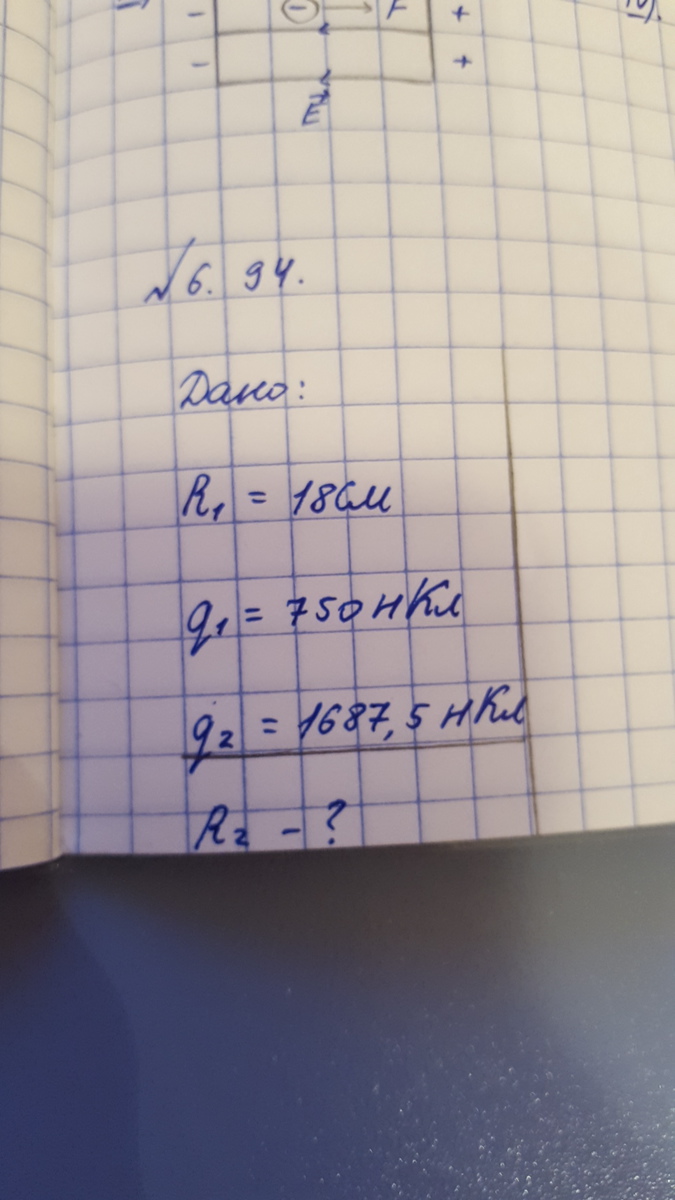 - − F +
- +
E
№6. 94.
Дано:
R₁ = 18см
q₁ = 750 нКл
q₂ = 1687,5 нКл
R₂ - ?